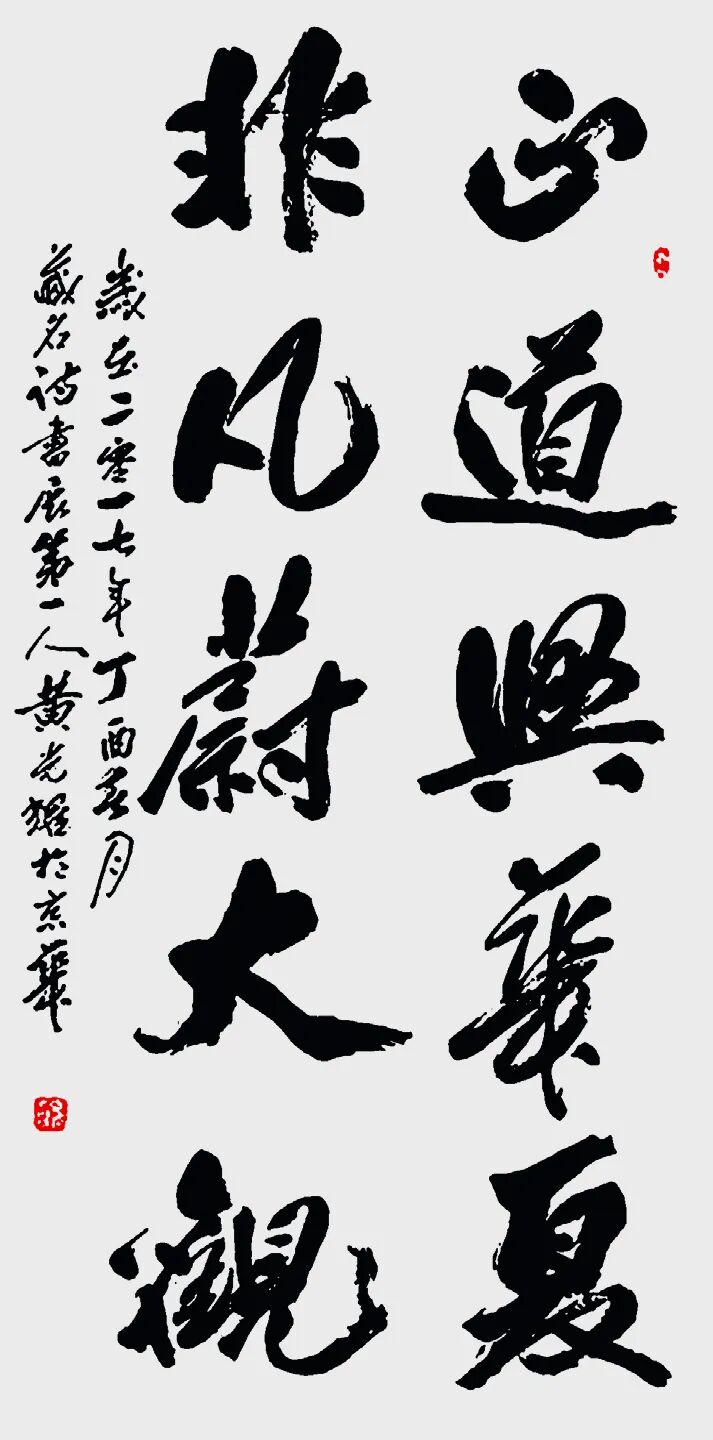 正道興華夏
非凡蔚大觀
歲在二零一七年丁酉春月
藏名诗書展第一人黄光耀於京華